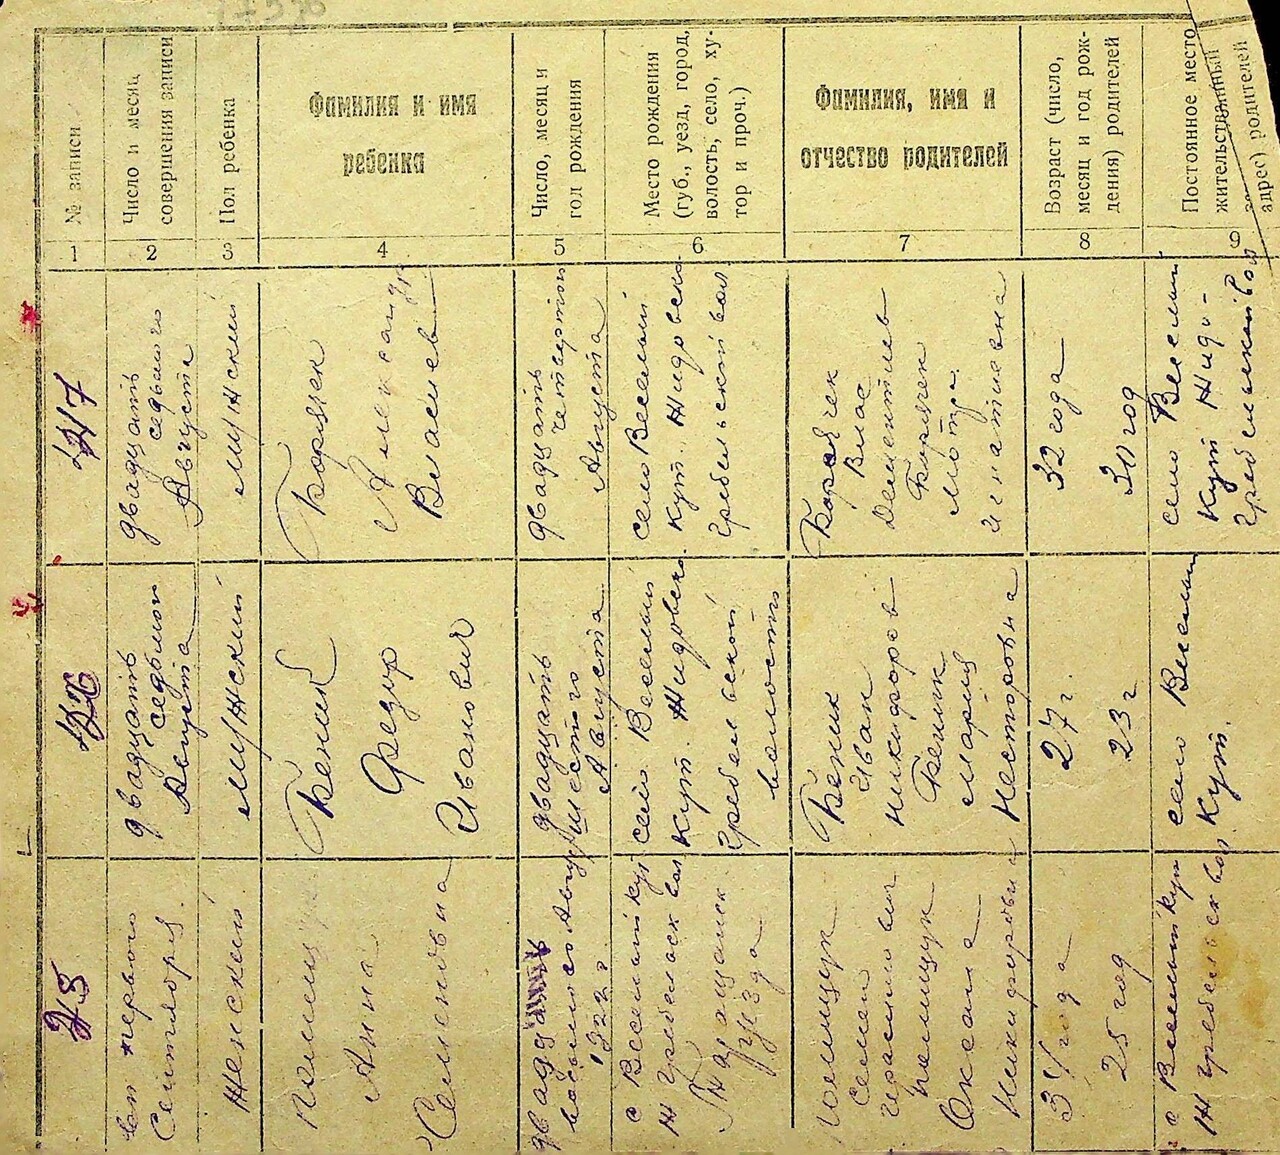 № записи
Число и месяц
совершения записи
Пол ребенка
Фамилия и имя
ребенка
Число, месяц и
год рождения
Место рождения
(губ., уезд, город,
волость, село, ху-
тор и проч.)
Фамилия, имя и
отчество родителей
Возраст (число,
месяц и год рож-
дения) родителей
Постоянное место
жительства
адрес) родителей
1
2
3
4
5
6
7
8
9
двадцать
седьмого
Августа
Мужской
Александр
Власиев
двадцать
четвертого
Августа
село Веселый
кут. Жидовско
Гребельской вол.
Влас
Дементиев
Мотря
Игнатиевна
32 года
30 год
село Веселый
кут Жидо-
Гребельской вол
двадцать
седьмой
Августа
Мужской
Беник
Федор
Иванович
двадцать
шестого
Августа
село Веселый
кут. Жидовско
Гребельской
волости
Беник
Иван
Никифоров
Беник
Мария
Несторовна
27 г.
23 г
село Веселый
кут.
28
первого
Сентября.
Женский
Полищук
Анна
Семеновна
двадцать
восьмого Август
1922 г
с Веселый кут
Ж Гребельск вол
Таращанск
уезда
Полищук
Семен
Герасимович
Полищук
Оксана
Никифоровна
34 года
25 год
с Веселый кут
Ж Гребельск вол